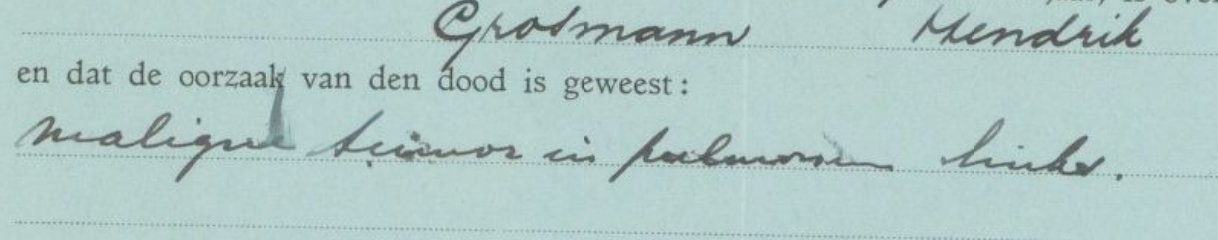 Grosmann Hendrik
en dat de oorzaak van den dood is geweest:
maligne tumor in pulmonem links.